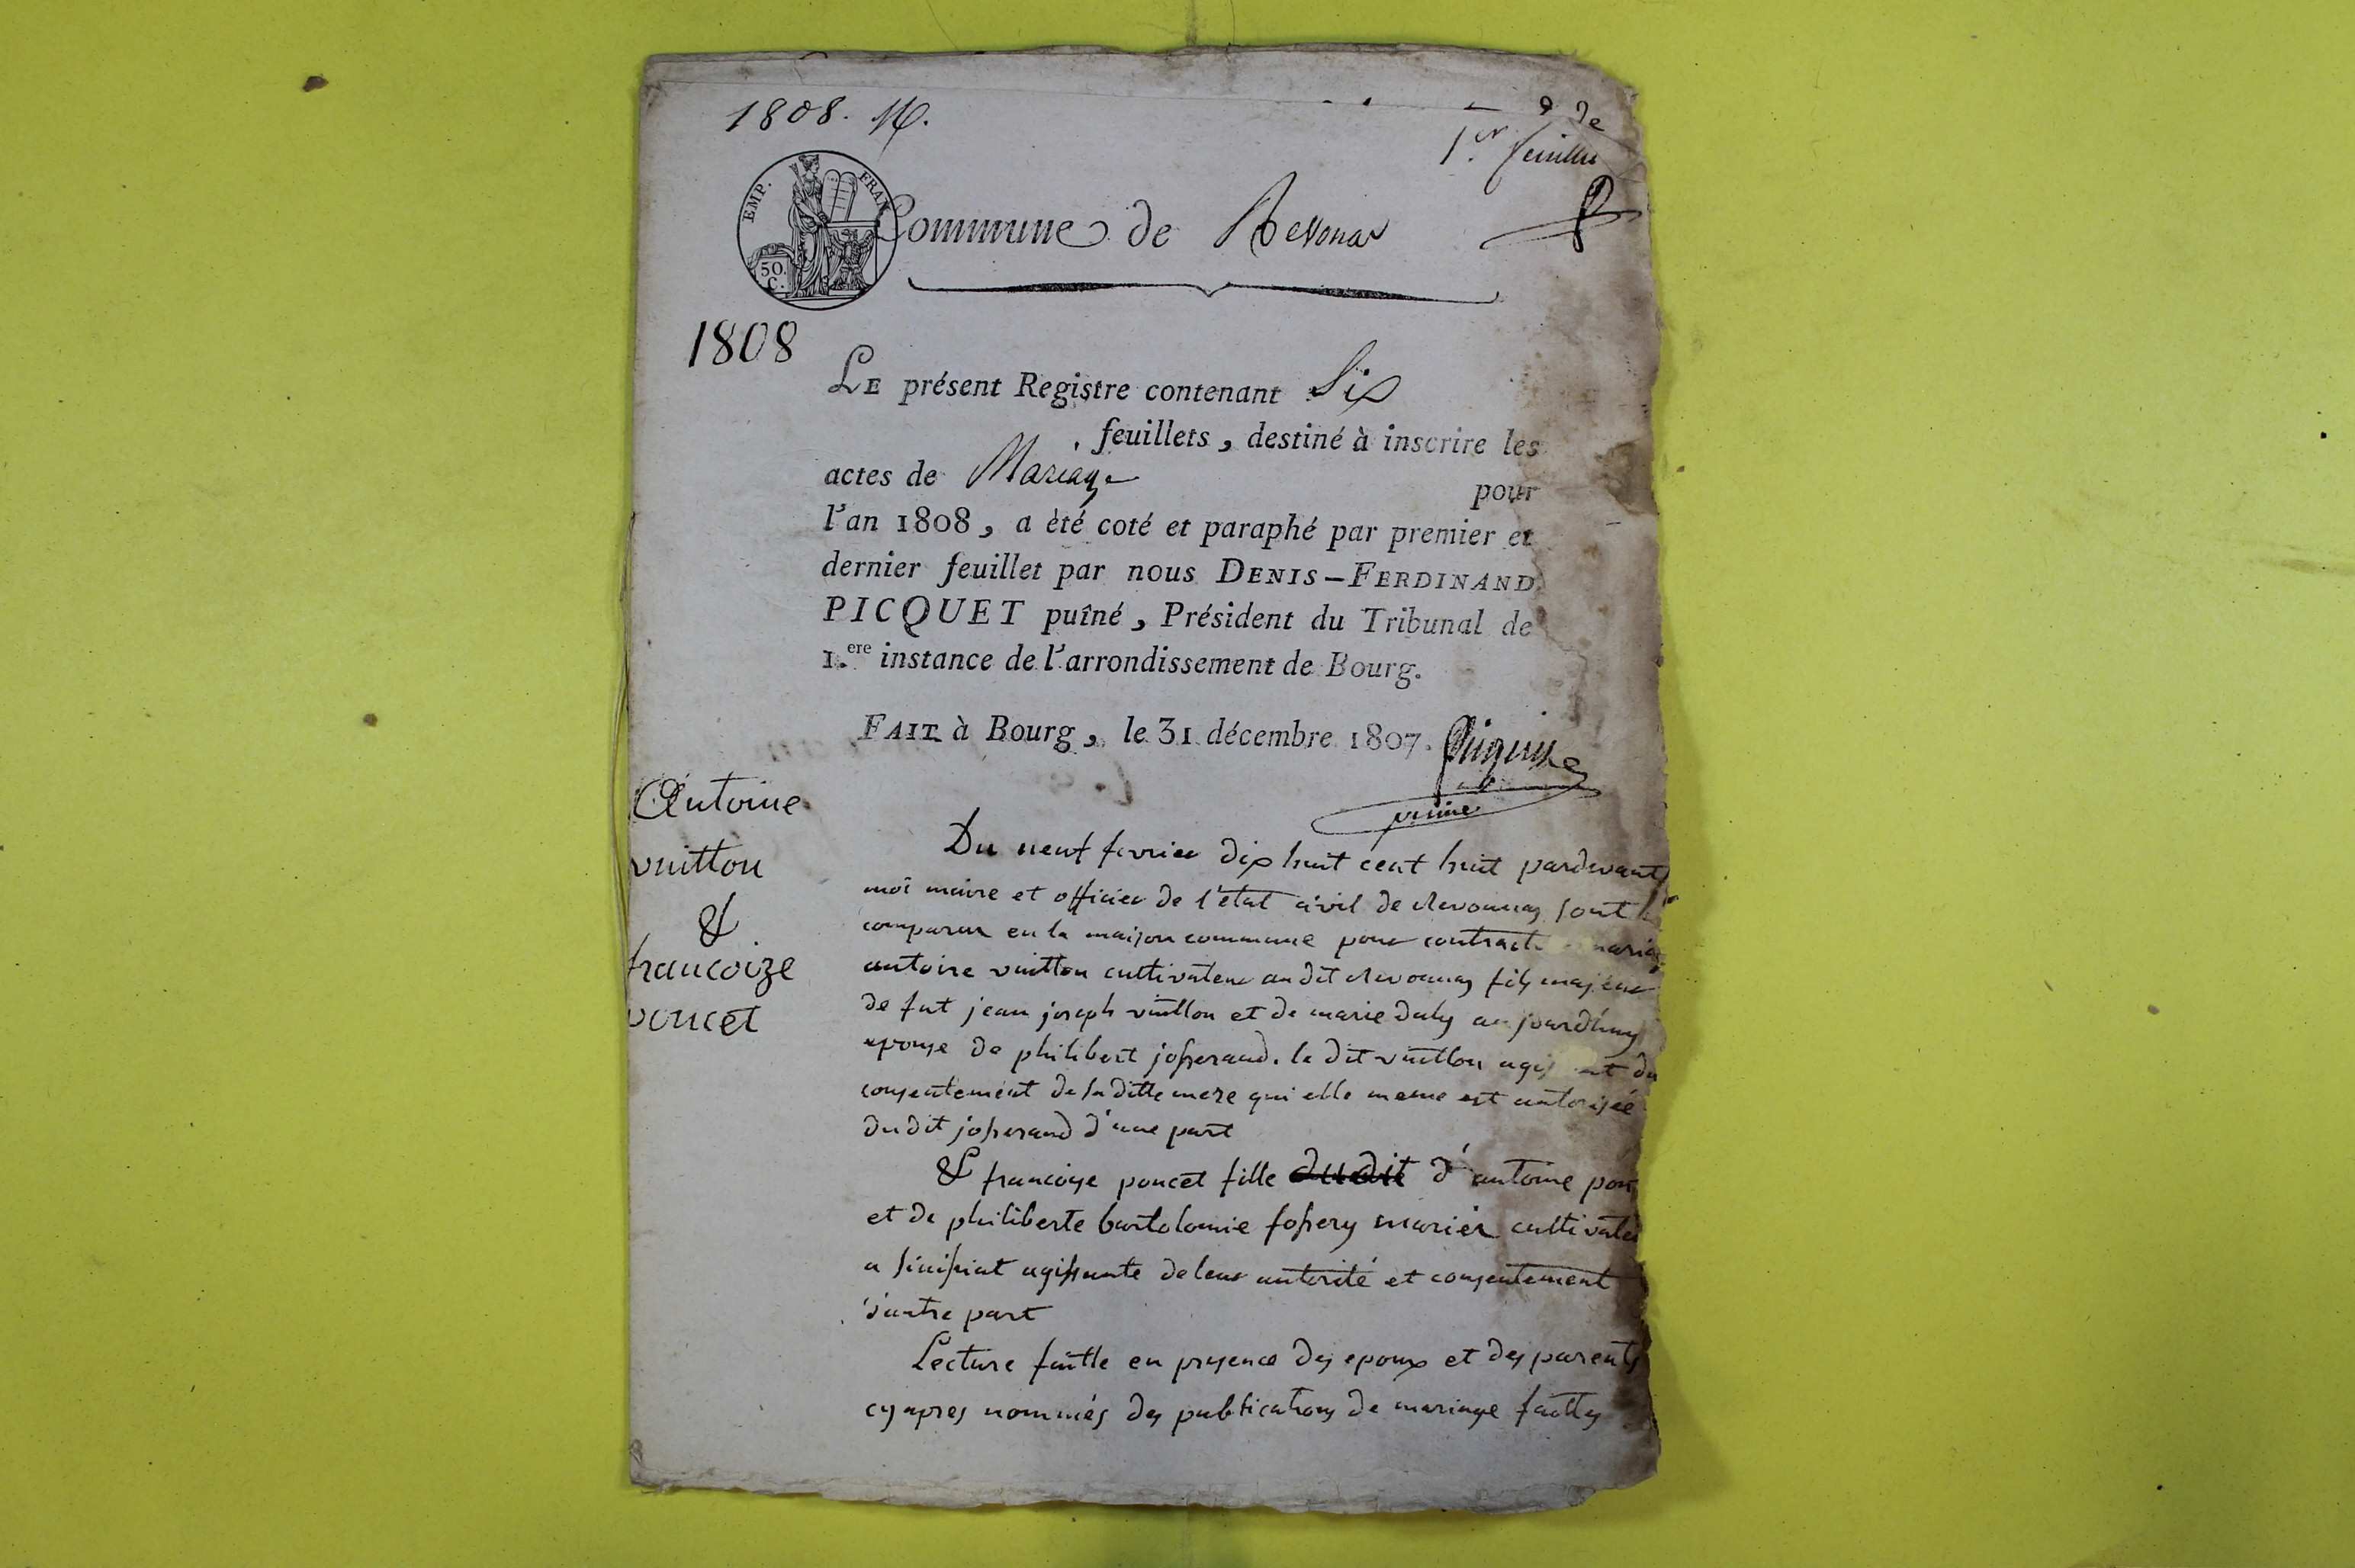 1808. M.
1.er feuillet
EMP. FRAN
50. C.
Commune de Revonas
1808
LE présent Registre contenant Six
feuillets, destiné à inscrire les
actes de Mariage pour
l'an 1808, a èté coté et paraphé par premier et
dernier feuillet par nous DENIS-FERDINAND
PICQUET puîné, Président du Tribunal de
1.ere instance de l'arrondissement de Bourg.
FAIT à Bourg, le 31 décembre 1807.
Picquet
puiné
Antoine
vuitton
&
francoize
poncet
Du neuf fevrier dix huit cent huit pardevant
moi maire et officier de l'état civil de Revonnas sont
comparus en la maison commune pour contracter mariage
antoine vuitton cultivateur au dit Revonnas fils majeur
de fut jean joseph vuitton et de marie duby aujourdhuy
epouse de philibert josserand. le dit vuitton agissant du
consentement de sa ditte mere qui elle meme est autorisée
du dit josserand d'une part
& francoise poncet fille dudit d'antoine pon
et de philiberte bartolomie fossery mariés cultivate
a simssiat agissante de leur autorité et consentement
d'autre part
Lecture faitte en presence des epoux et des parents
cy apres nommés des publications de mariage faittes